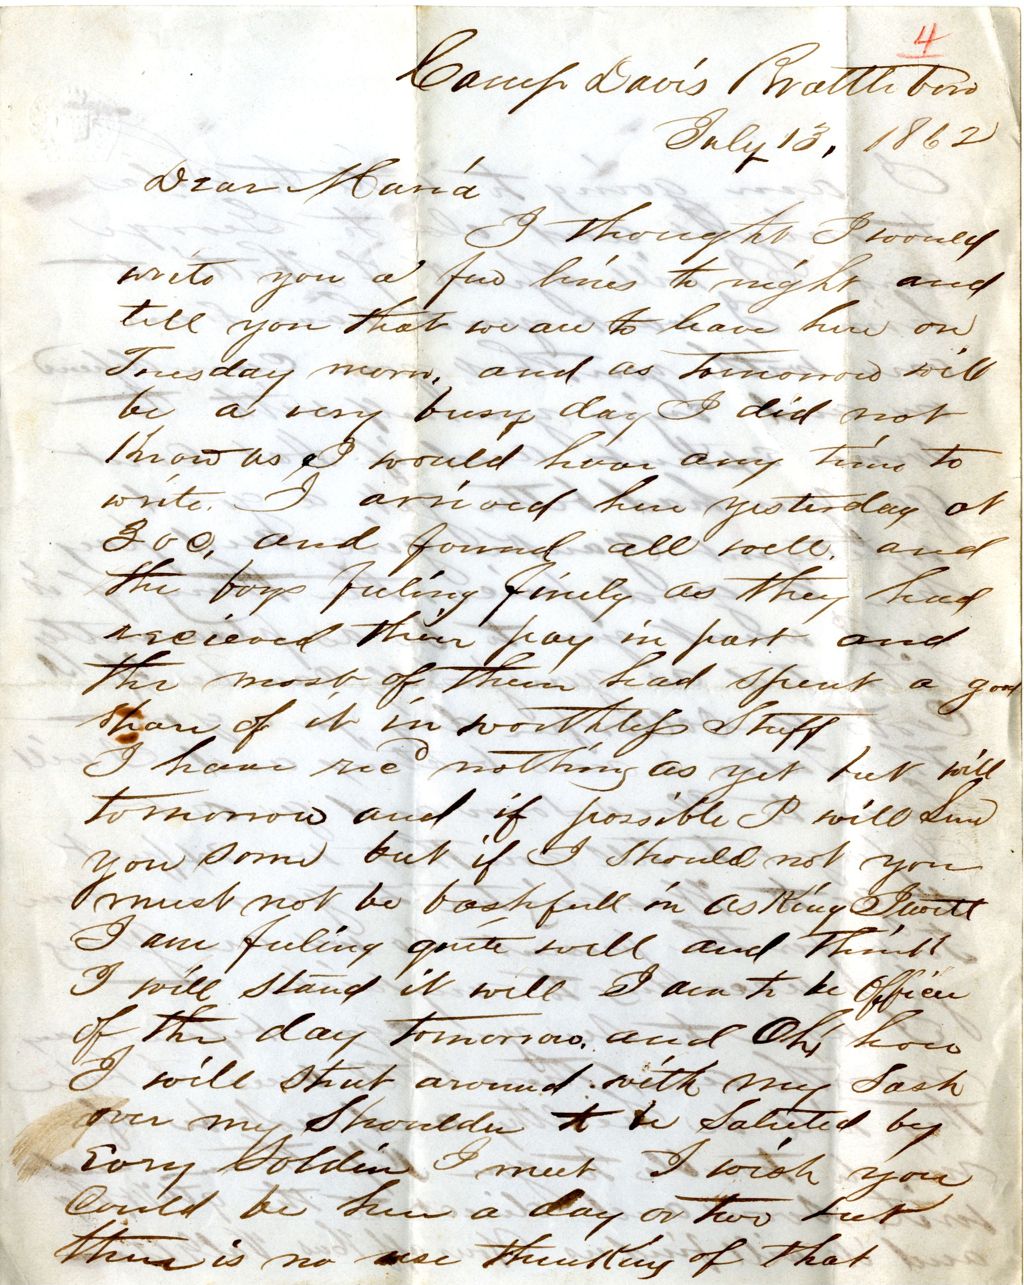 4
Camp Davis Brattleboro
July 13, 1862
Dear Maria
I thought I would
write you a few lines to night and
tell you that we are to leave here on
Tuesday morn, and as tomorrow will
be a very busy day I did not
Know as I would have any time to
write. I arrived here yesterday at
3 oc, and found all well. and
the boys feeling finely as they had
recieved their pay in part and
the most of them had spent a good
share of it in worthless Stuff
I have recd nothing as yet but will
tomorrow and if possible I will Send
you some but if I should not you
must not be bashfull in asking I will
I am feeling quite well and think
I will stand it well I am to be Officer
of the day tomorrow. and Oh, how
I will strut around with my Sash
over my Shoulder to be Saluted by
Every Soldier I meet I wish you
Could be here a day or two but
there is no use thinking of that